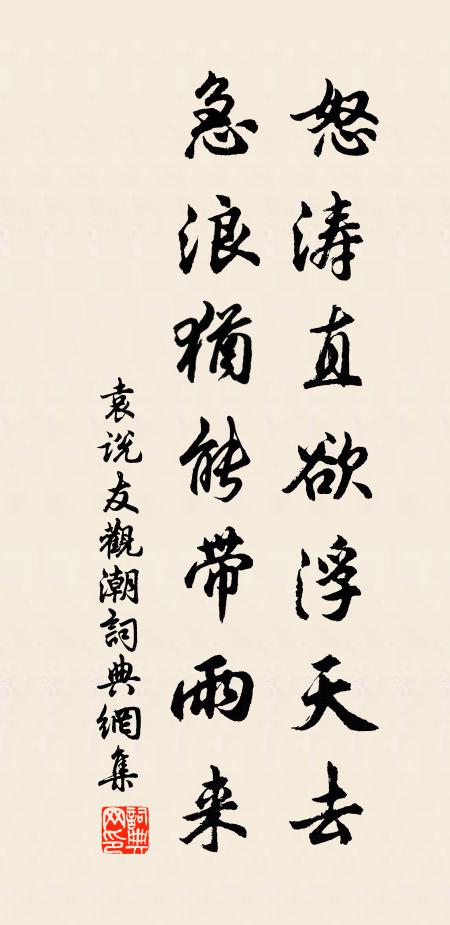 怒涛直欲浮天去
急浪犹能带雨来
袁说友觀潮詞典網集
詞典网印